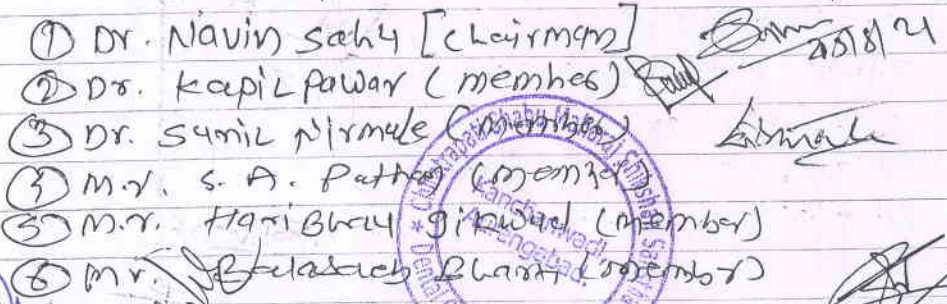 ① Dr. Navin Sahu [Chairman] 25/8/21
② Dr. Kapil Pawar (member)
③ Dr. Sunil Nirmale (member)
④ Mr. S. A. Pathan (member)
⑤ Mr. Hari Bhau Gikwad (member)
⑥ Mr. Balasaheb Bharti (member)
Chhatrapati Shahu Maharaj Shikshan Sanstha
Kanchanwadi,
Aurangabad.
Dental